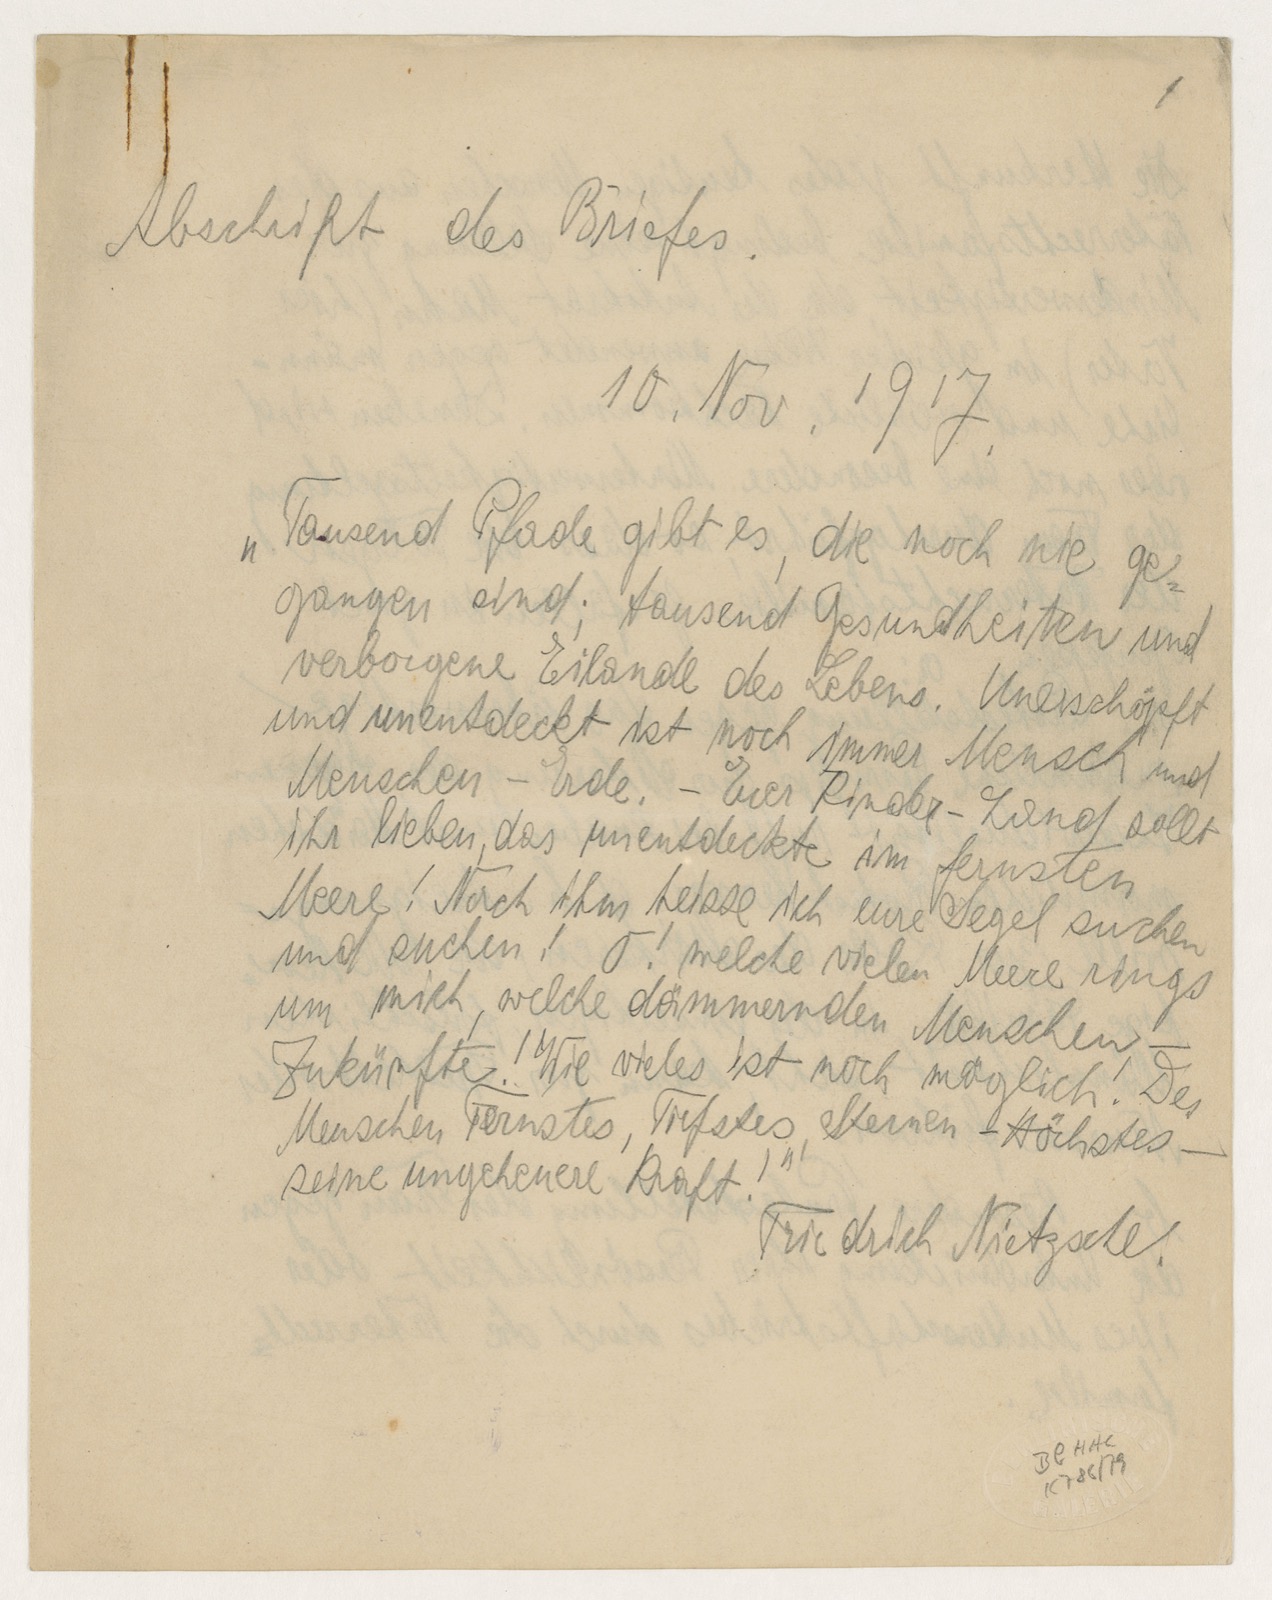 1
Abschrift des Briefes.
10. Nov. 1917.
„Tausend Pfade gibt es, die noch nie ge=
gangen sind; tausend Gesundheiten und
verborgene Eilande des Lebens. Unerschöpft
und unentdeckt ist noch immer Mensch und
Menschen - Erde. - Euer Kinder-Land sollt
ihr lieben, das unentdeckte im fernsten
Meere! Nach ihm heisse ich eure Segel suchen
und suchen! O! welche vielen Meere rings
um mich, welche dämmernden Menschen -
Zukünfte!" Wie vieles ist noch möglich! Des
Menschen Fernstes, Tiefstes, Sternen - Höchstes -
seine ungeheuere Kraft!"
Friedrich Nietzsche.
BG HHC
K 786/79